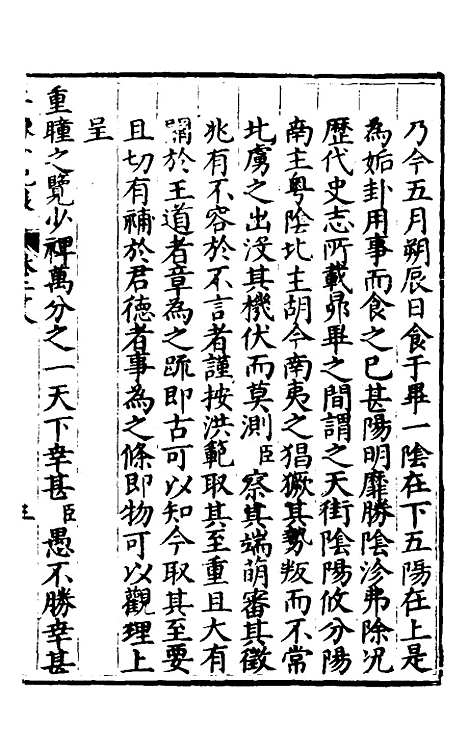 乃今五月朔辰日食于畢一陰在下五陽在上是
為姤卦用事而食之巳甚陽明靡勝陰沴弗除況
歷代史志所載昴畢之間謂之天街陰陽攸分陽
南主粵陰北主胡今南夷之猖獗其勢叛而不常
北虜之出沒其機伏而莫測臣察其端萌審其徵
兆有不容於不言者謹按洪範取其至重且大有
關於王道者章為之疏即古可以知今取其至要
且切有補於君德者事為之條即物可以觀理上
呈
重瞳之覽少裨萬分之一天下幸甚臣愚不勝幸甚